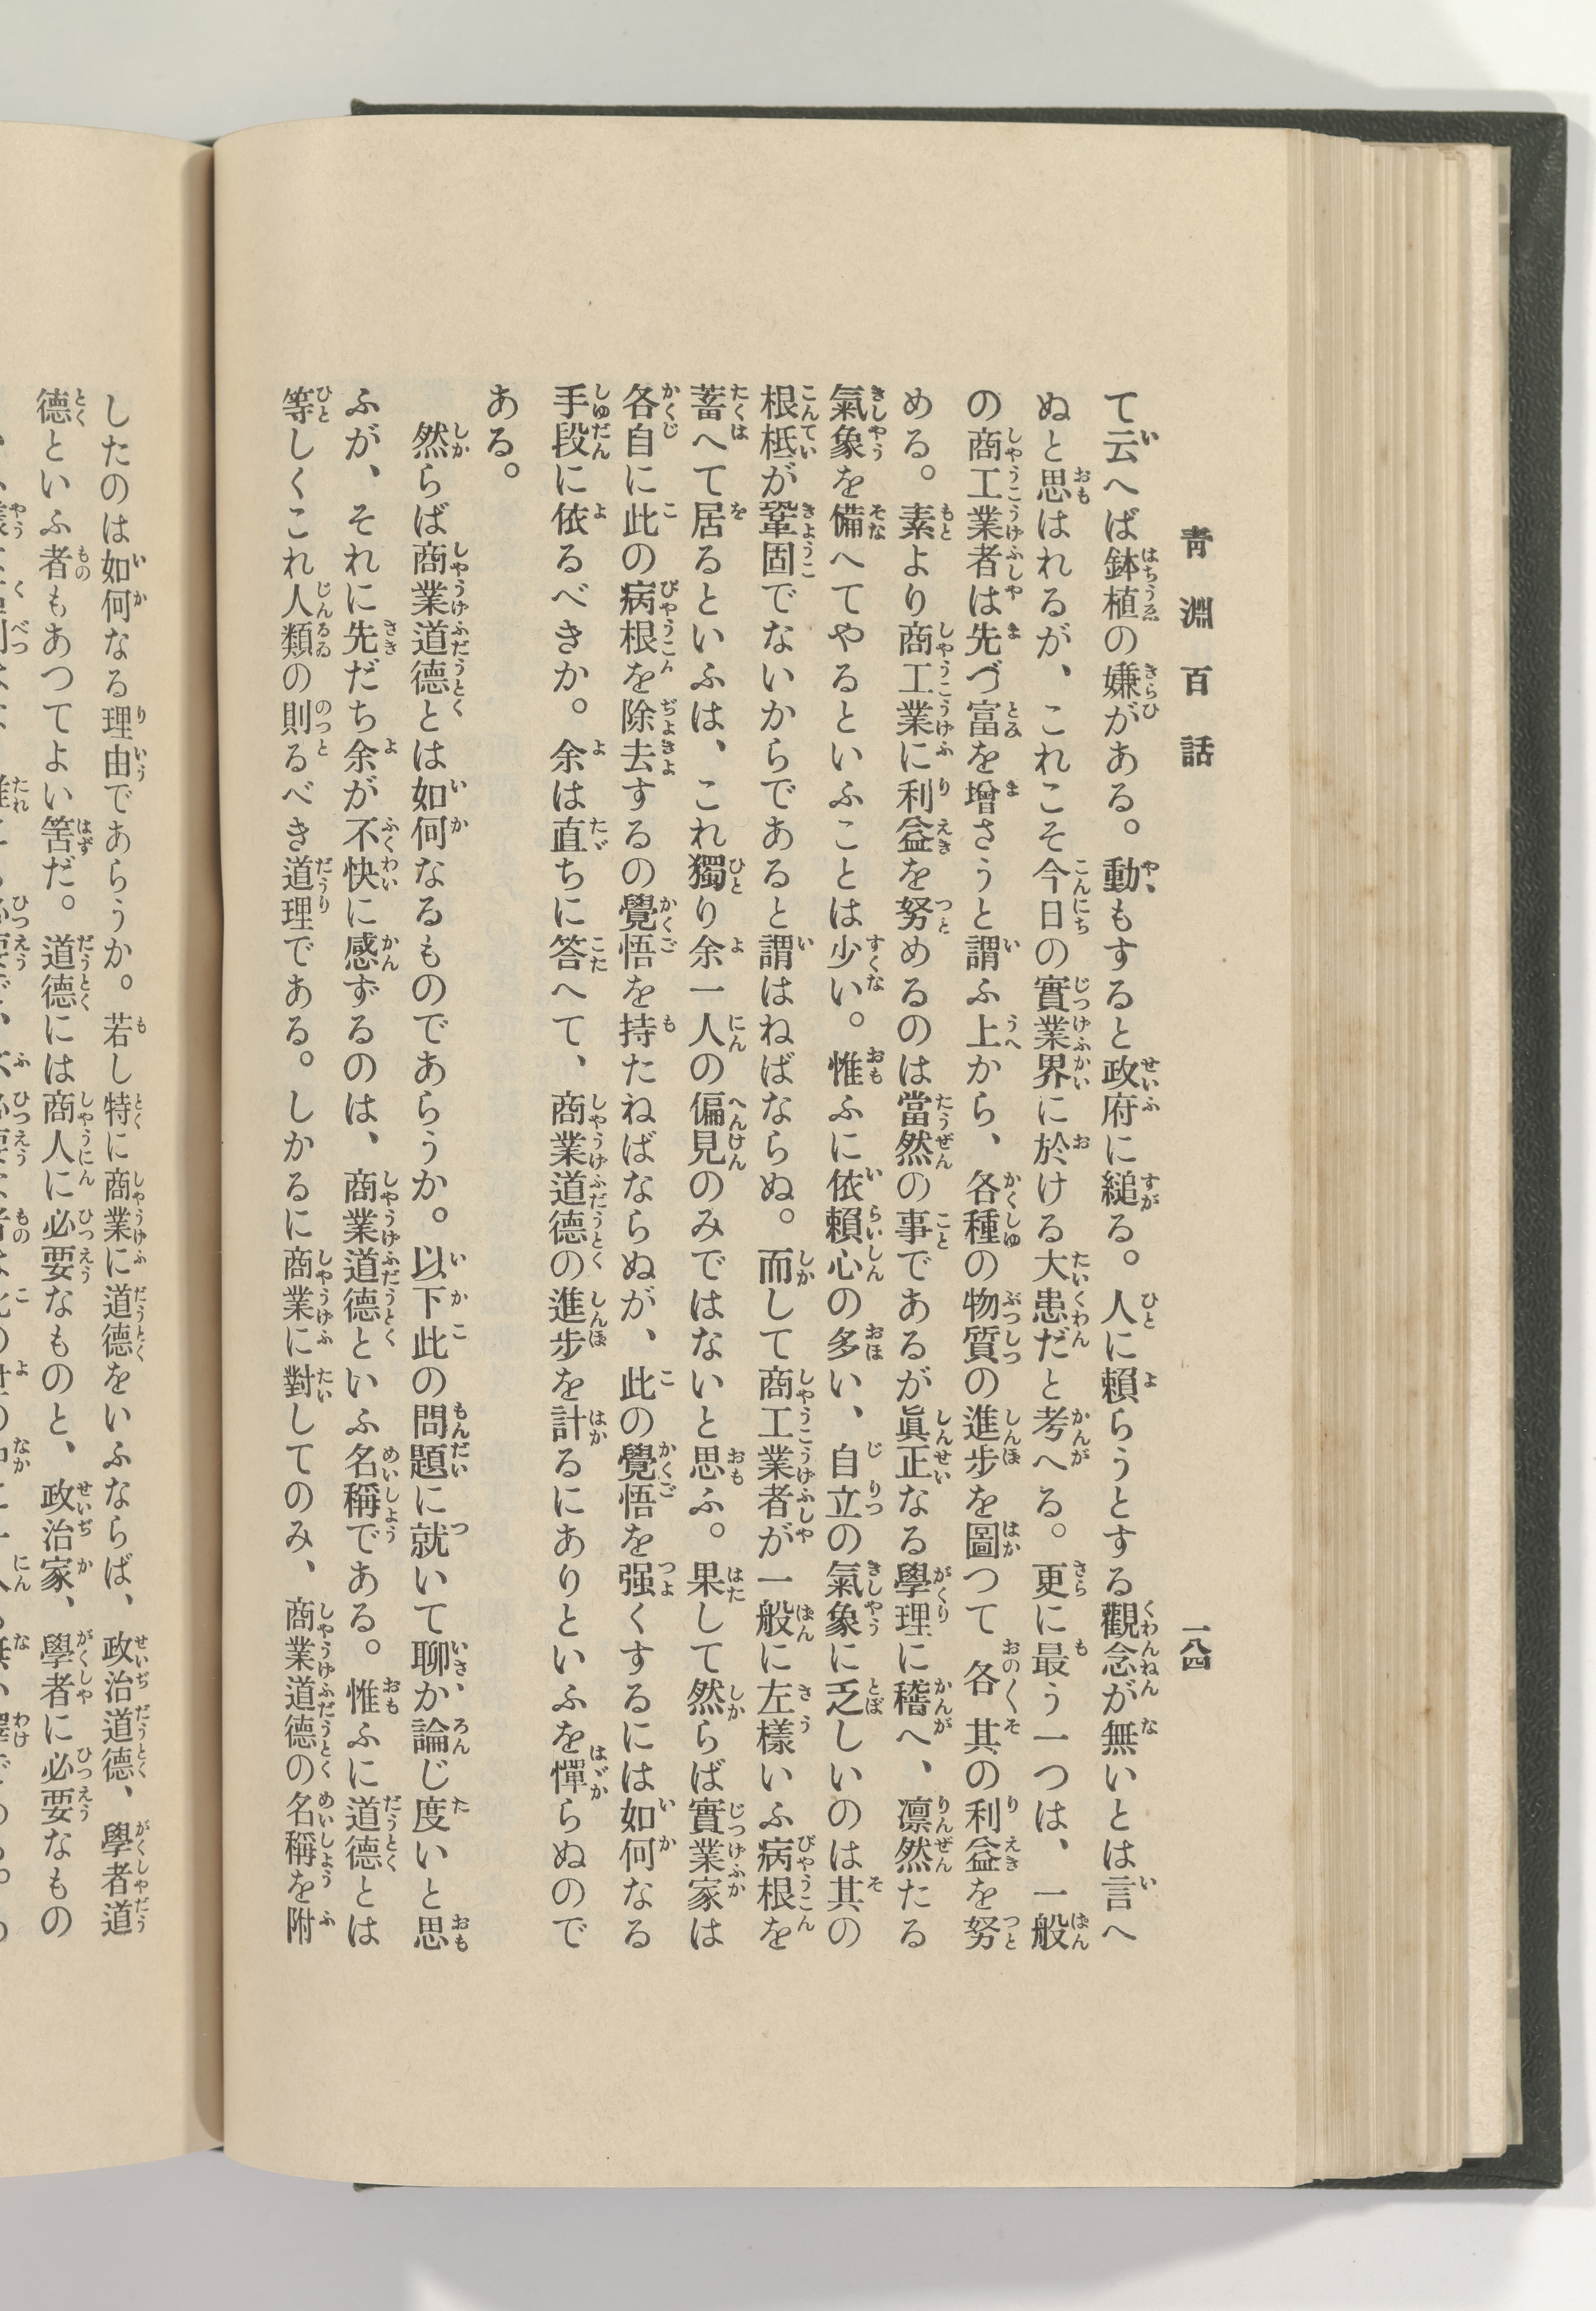 靑淵百話
一八四
て云へば鉢植の嫌がある。動もすると政府に縋る。人に賴らうとする觀念が無いとは言へ
ぬと思はれるが、これこそ今日の實業界に於ける大患だと考へる。更に最う一つは、一般
の商工業者は先づ富を增さうと謂ふ上から、各種の物質の進步を圖つて各〻其の利益を努
める。素より商工業に利益を努めるのは當然の事であるが眞正なる學理に稽へ、凛然たる
氣象を備へてやるといふことは少い。惟ふに依賴心の多い、自立の氣象に乏しいのは其の
根柢が鞏固でないからであると謂はねばならぬ。而して商工業者が一般に左樣いふ病根を
蓄へて居るといふは、これ獨り余一人の偏見のみではないと思ふ。果して然らば實業家は
各自に此の病根を除去するの覺悟を持たねばならぬが、此の覺悟を强くするには如何なる
手段に依るべきか。余は直ちに答へて、商業道德の進步を計るにありといふを憚らぬので
ある。
然らば商業道德とは如何なるものであらうか。以下此の問題に就いて聊か論じ度いと思
ふが、それに先だち余が不快に感ずるのは、商業道德といふ名稱である。惟ふに道德とは
等しくこれ人類の則るべき道理である。しかるに商業に對してのみ、商業道德の名稱を附
したのは如何なる理由であらうか。若し特に商業に道德をいふならば、政治道德、學者道
德といふ者もあつてよい筈だ。道德には商人に必要なものと、政治家、學者に必要なもの